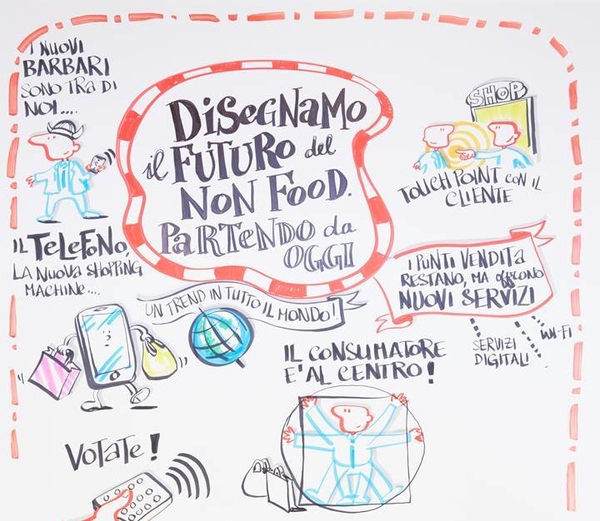 I NUOVI
BARBARI
SONO TRA DI
NOI....
DISEGNAMO
il FUTURO del
NON FOOD.
PARTENDO da
OGGI
SHOP
TOUCH POINT CON IL
CLIENTE
IL TELEFONO,
LA NUOVA SHOPPING
MACHINE....
UN TREND IN TUTTO IL MONDO!
I PUNTI VENDITA
RESTANO, MA offrono
NUOVI SERVIZI
SERVIZI
DIGITALI
Wi-Fi
IL CONSUMATORE
E' AL CENTRO!
VOTATE!